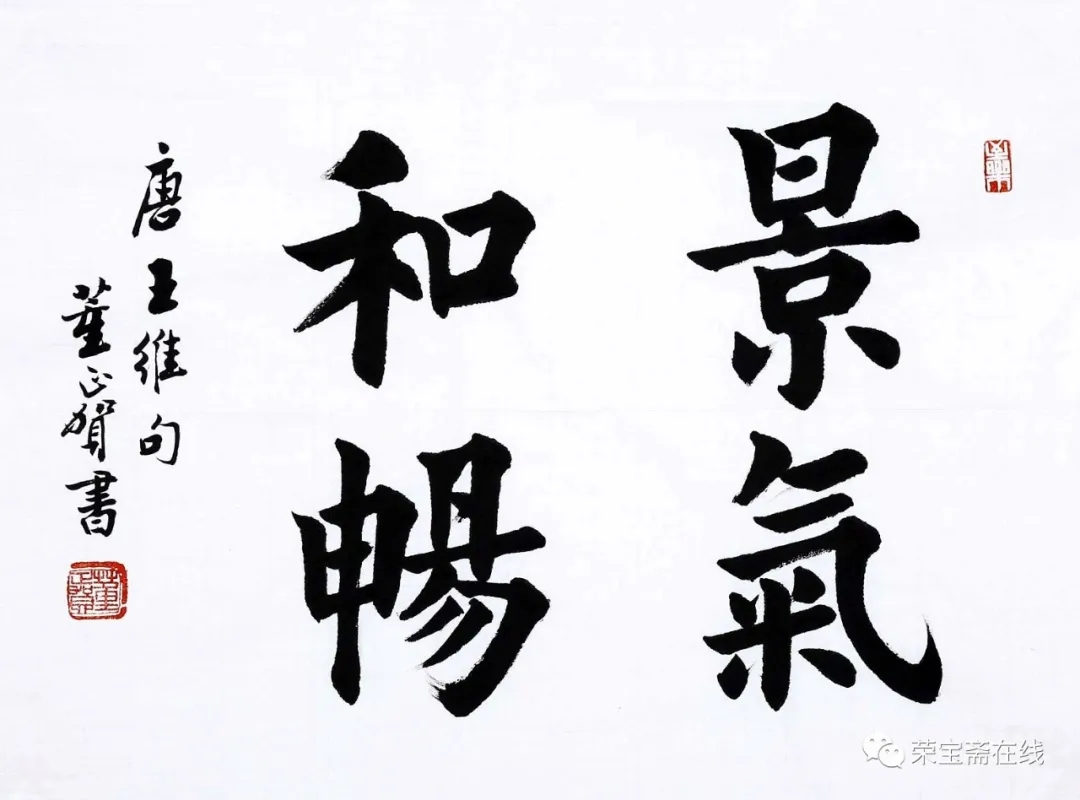 景氣
和暢
唐王維句
董正賀書
荣宝斋在线